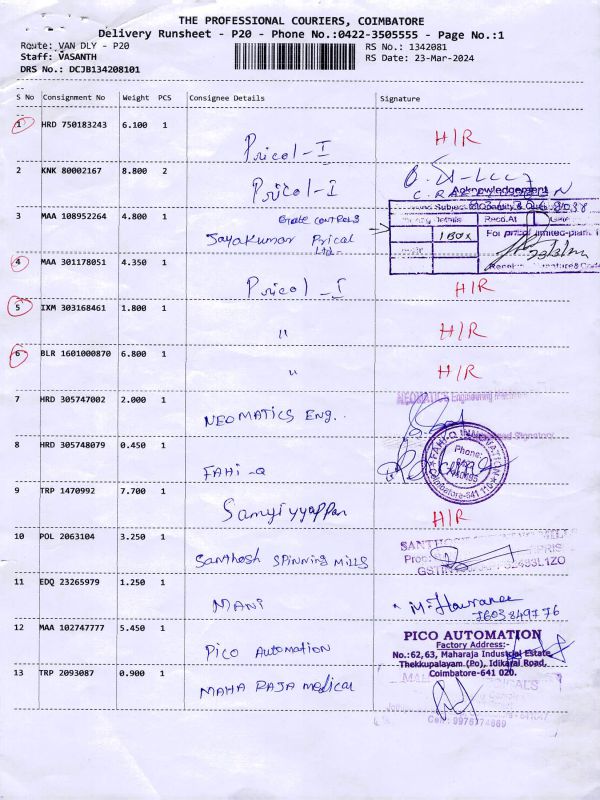 THE PROFESSIONAL COURIERS, COIMBATORE
Delivery Runsheet - P20 - Phone No.:0422-3505555 - Page No.:1
Route: VAN DLY - P20 RS No.: 1342081
Staff: VASANTH RS Date: 23-Mar-2024
DRS No.: DCJB134208101
S No Consignment No Weight PCS Consignee Details Signature
1 HRD 750183243 6.100 1 Pricol-I H/R
2 KNK 80002167 8.800 2 Pricol-I
Acknowledgement
3 MAA 108952264 4.800 1 Jayakumar Pricol Ltd-
Recd.At
1 BOX
4 MAA 301178051 4.350 1 Pricol-I H/R
5 IXM 303168461 1.800 1 " H/R
6 BLR 1601000870 6.800 1 " H/R
7 HRD 305747002 2.000 1 NEOMATICS Eng..
NEOMATICS Engineering
8 HRD 305748079 0.450 1 FAHI-Q
Phone:
9 TRP 1470992 7.700 1 Samyiyyappan H/R
10 POL 2063104 3.250 1 Santhosh Spinning Mills
11 EDQ 23265979 1.250 1 MANI
7603849776
12 MAA 102747777 5.450 1 Pico Automation
PICO AUTOMATION
Factory Address:-
No.:62,63, Maharaja Industrial Estate,
Thekkupalayam (Po), Idikarai Road,
Coimbatore-641 020.
13 TRP 2093087 0.900 1 MAHA RAJA medical
Cell : 9976774669